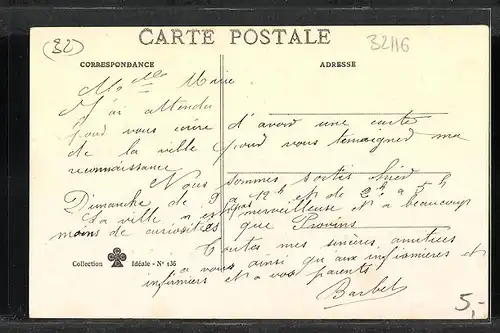 (32)
CARTE POSTALE
32116
CORRESPONDANCE
ADRESSE
Melle Marie
J'ai attendu
pour vous écrire d'avoir une carte
de la ville pour vous témoigner ma
reconnaissance.
Nous sommes sortis hier
Dimanche de 9 à 12h et de 2h à 5h
La ville n'est pas merveilleuse et a beaucoup
moins de curiosités que Provins
Toutes mes sincères amitiées
à vous ainsi qu'aux infirmières et
infirmiers et à vos parents
Barbet
Collection Idéale - No 136
5,-